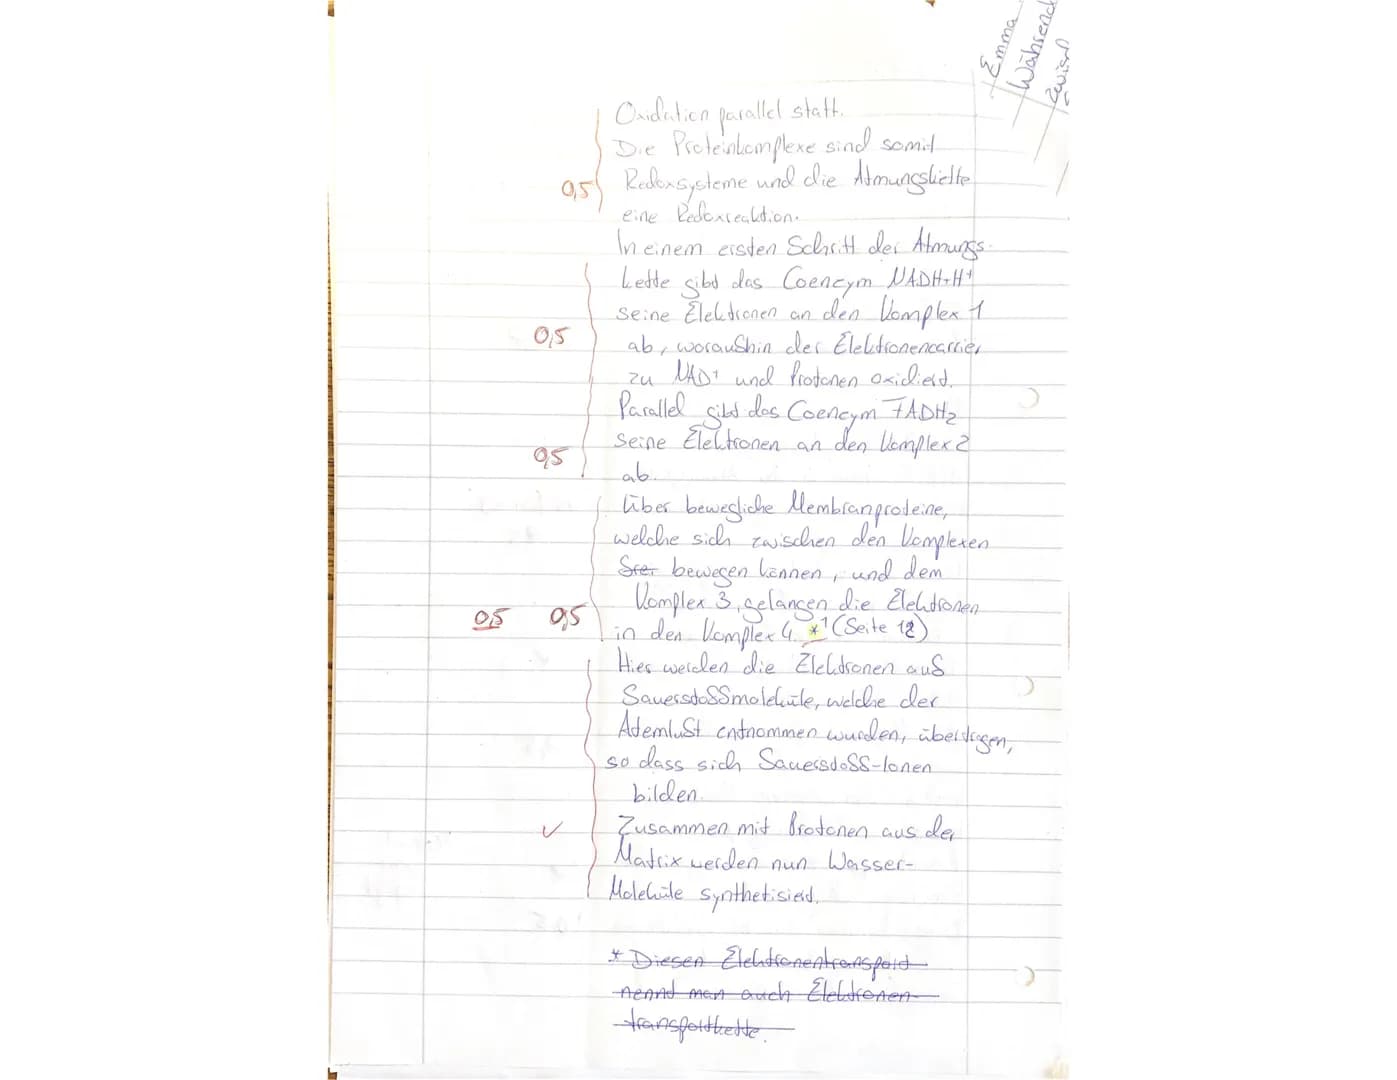 Emma
Während
zwisch
Oxidation parallel statt.
Die Proteinkomplexe sind somit
0,5 Redoxsysteme und die Atmungskette
eine Redoxreaktion.
In einem ersten Schritt der Atmungs-
kette gibt das Coenzym NADH+H⁺
seine Elektronen an den Komplex 1
0,5 ab, woraufhin der Elektronencarrier
zu NAD⁺ und Protonen oxidiert.
Parallel gibt das Coenzym FADH₂
seine Elektronen an den Komplex 2
0,5 ab.
Über bewegliche Membranproteine,
welche sich zwischen den Komplexen
bewegen können, und dem
Komplex 3, gelangen die Elektronen
0,5 0,5 in den Komplex 4. *¹ (Seite 12)
Hier werden die Elektronen auf
Sauerstoffmoleküle, welche der
Atemluft entnommen wurden, übertragen,
so dass sich Sauerstoff-Ionen
bilden.
✓ Zusammen mit Protonen aus der
Matrix werden nun Wasser-
Moleküle synthetisiert.
* Diesen Elektronentransport
nennt man auch Elektronen-
transportkette.